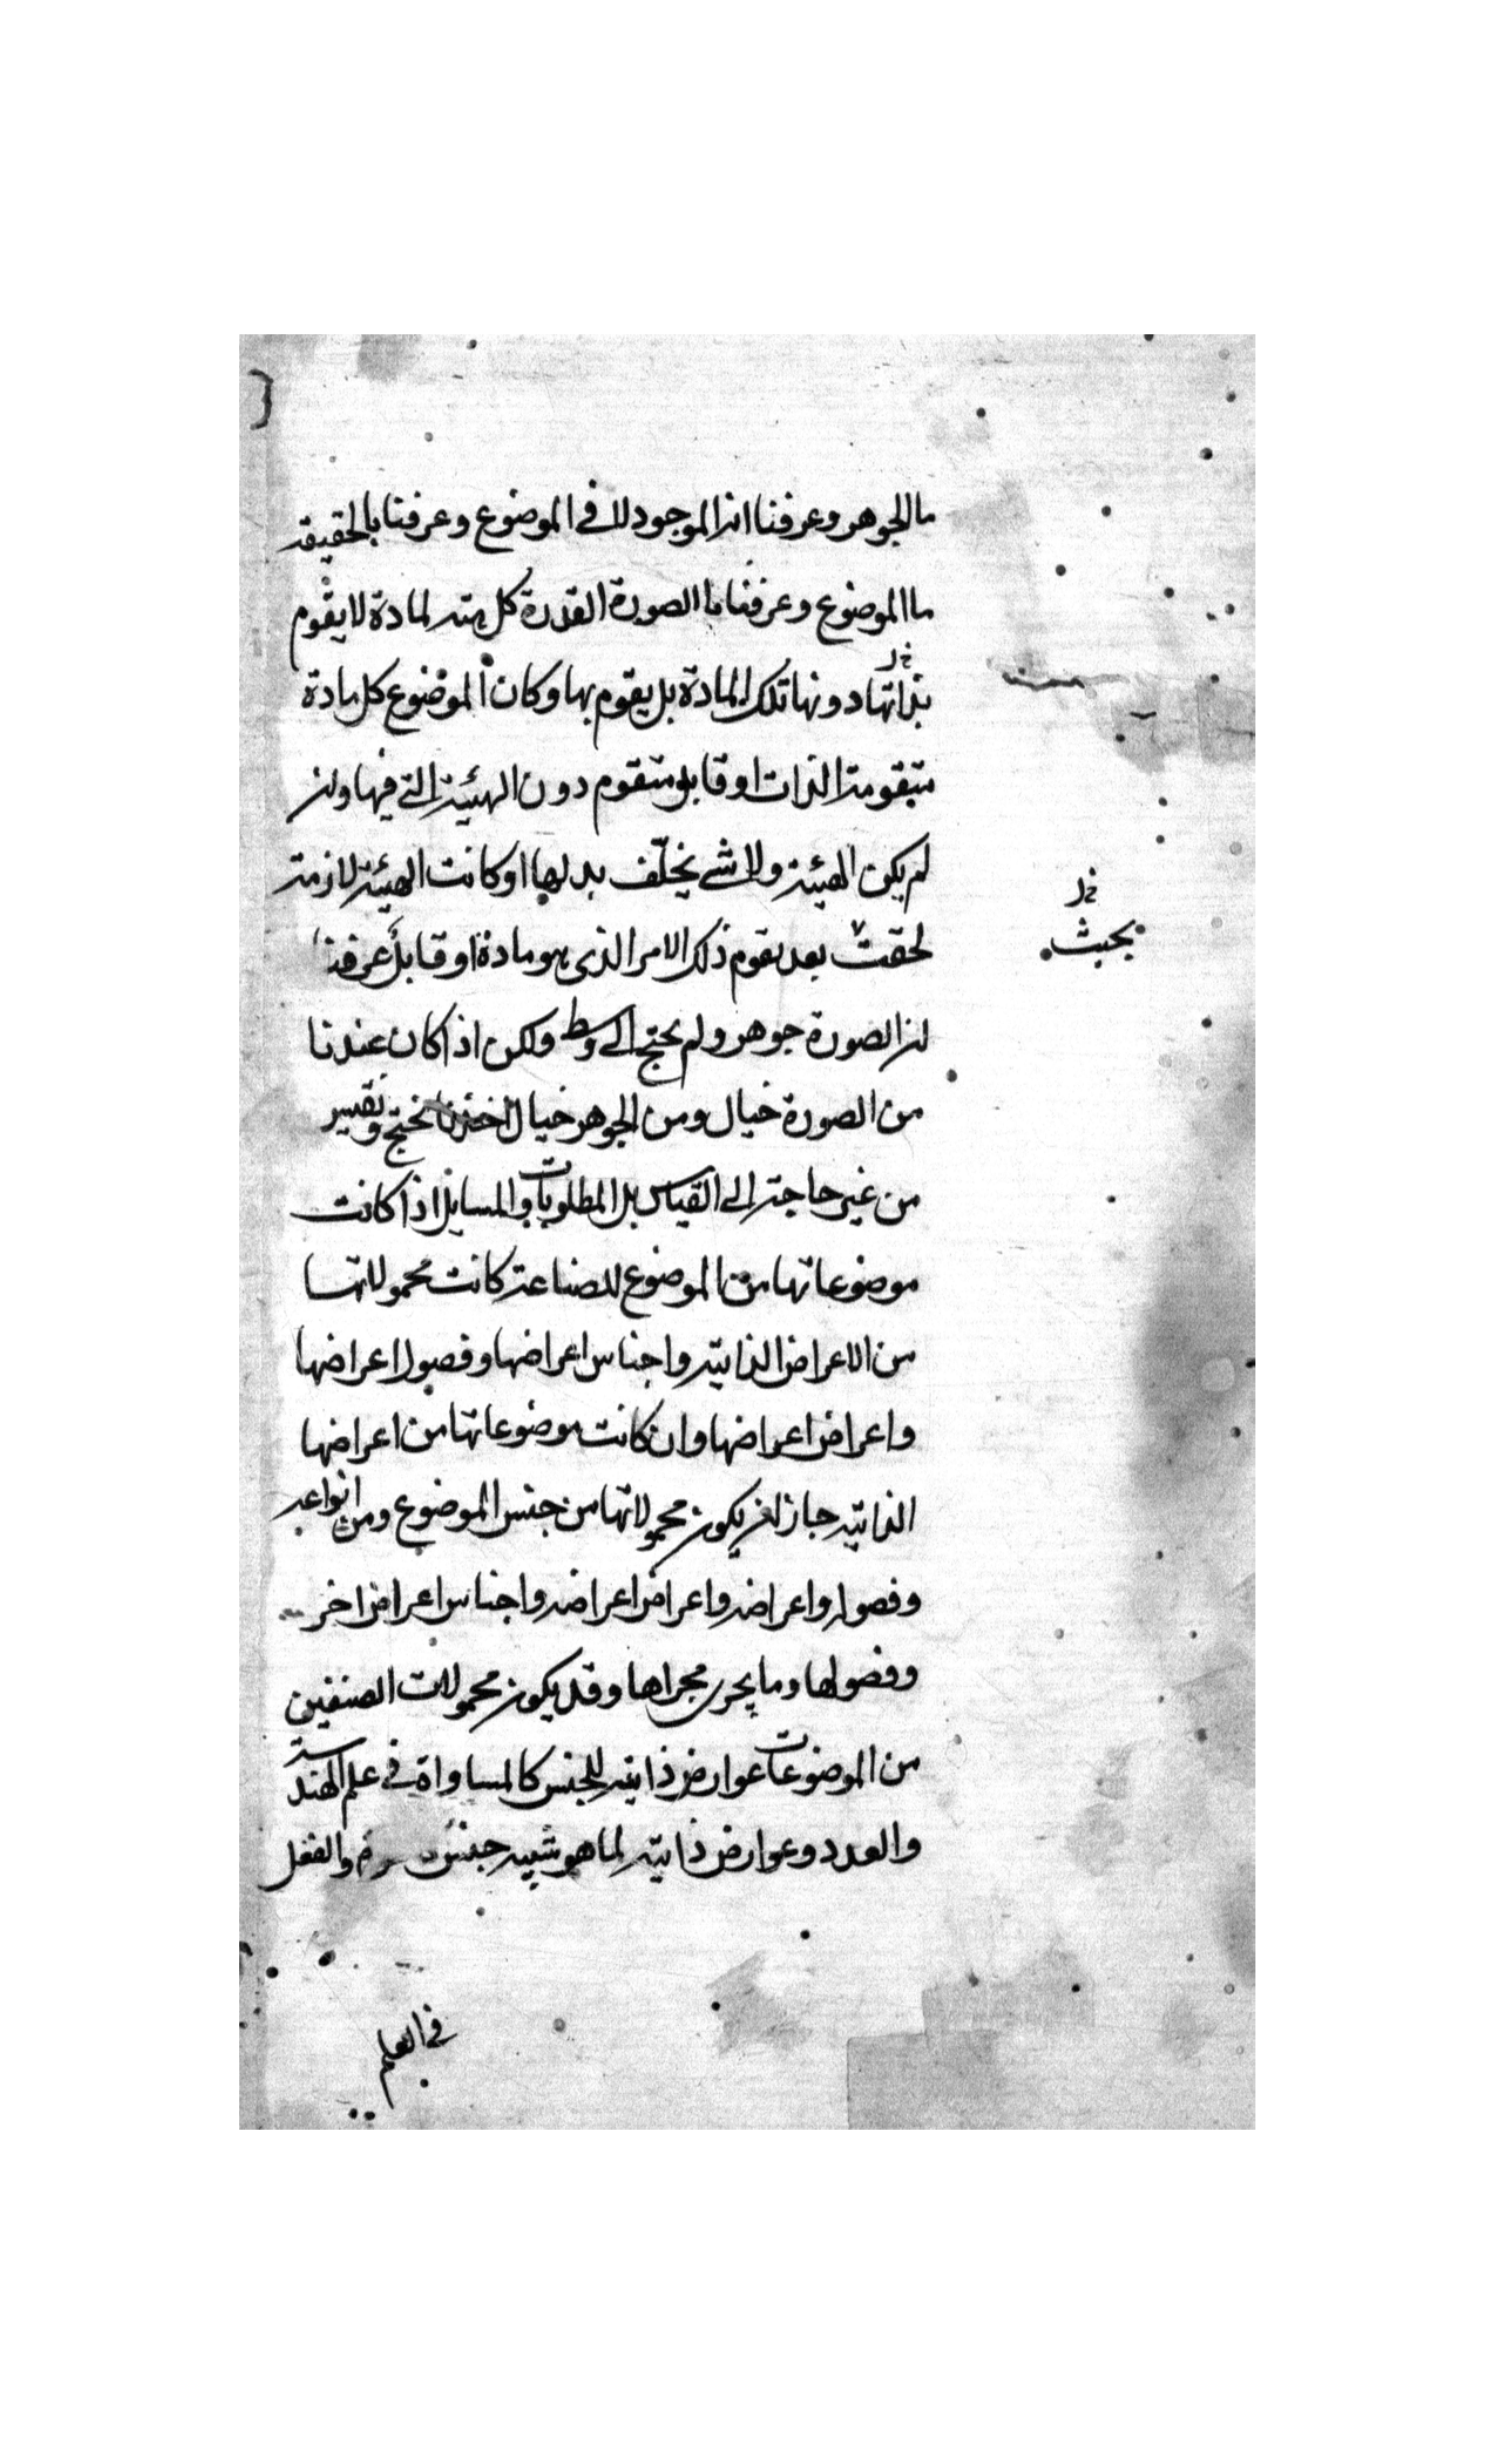 ما الجوهر وعرفنا انه الموجود لا في الموضوع وعرفنا بالحقيقة
ما الموضوع وعرفنا ما الصورة كل هيئة لمادة لا يقوم
بذاتها دونها تلك المادة بل يقوم بها وكان الموضوع كل مادة
متقومة الذات او قابل متقوم دون الهيئة التي فيها وان
لم يكن الهيئة ولا شي يخلّف بدلها او كانت الهيئة لازمة
لحقت بعد تقوم ذلك الامر الذي هو مادة او قابل عرفنا
ان الصورة جوهر ولم يحتج الى وسط ولكن اذا كان عندنا
من الصورة خيال ومن الجوهر خيال نحتج
من غير حاجة الى القياس بل المطلوبات والمسايل اذا كانت
موضوعاتها من الموضوع للصناعة كانت محمولاتها
من الاعراض الذاتية واجناس اعراضها وفصول اعراضها
واعراض اعراضها وان كانت موضوعاتها من اعراضها
الذاتية جاز ان يكون محمولاتها من جنس الموضوع ومن انواعه
وفصوله واعراضه واعراض اعراضه واجناس اعراض اخر
وفصولها وما يجري مجراها وقد يكون محمولات الصنفين
من الموضوعات عوارض ذاتية للجنس كالمساواة في علم الهندسة
والعدد وعوارض ذاتية لما هو شبيه جنس والفعل
في العلم
بحيث